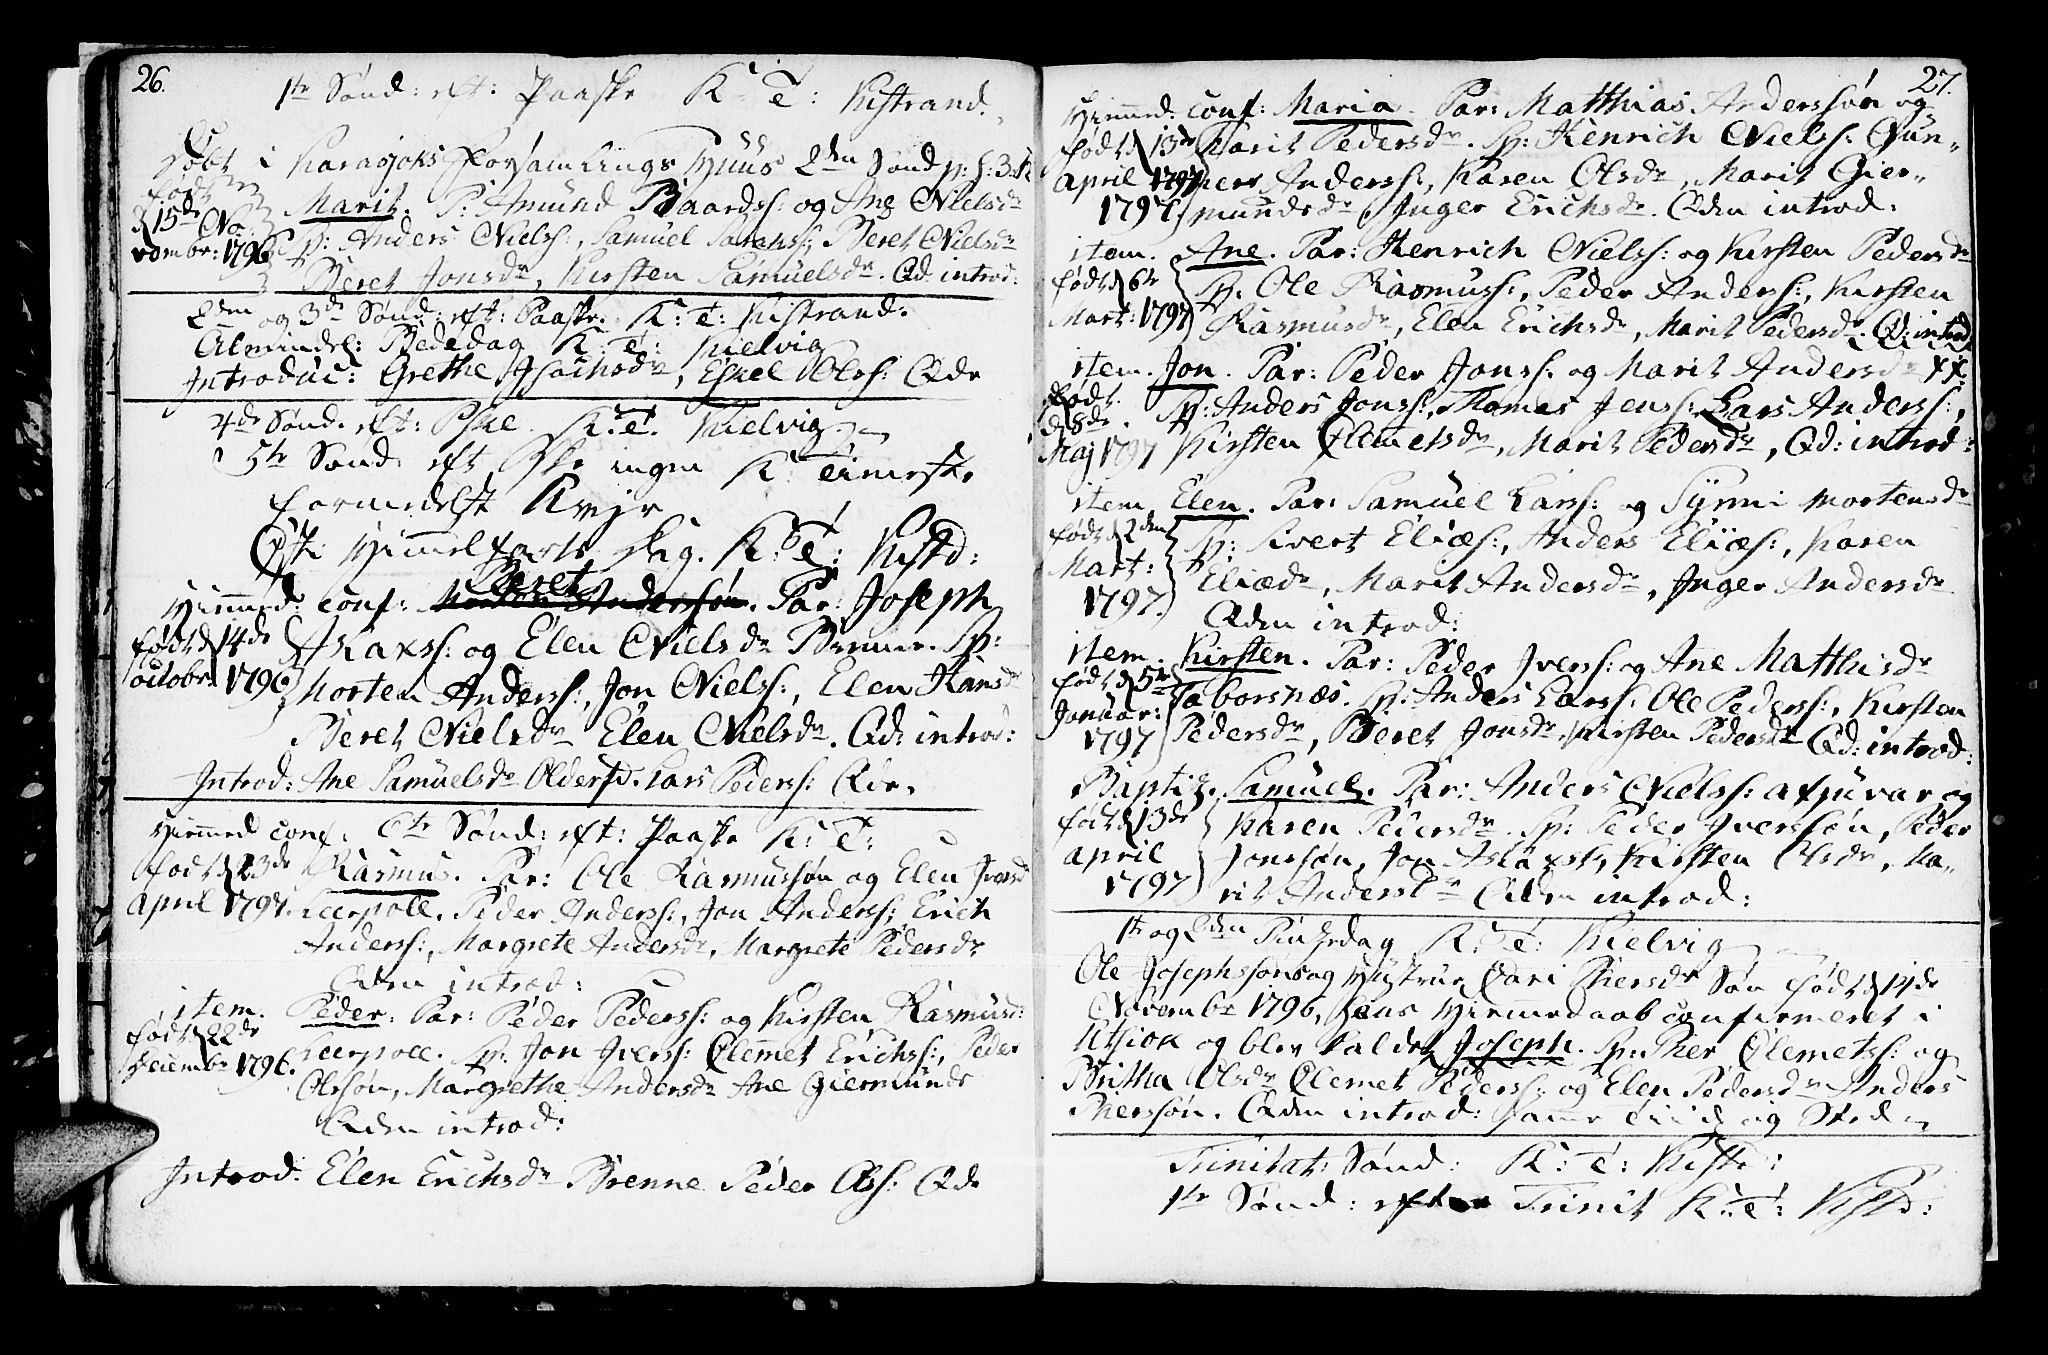 26.
1te Sønd: eft: Paaske K: T: Kistrand.
Døbt i Karasjoks Forsamlings Huus 2den Sønd p: h: 3: K
født
d 15de No-
vembr: 1796
Marit. P: Amund Baardss: og Ane Nielsdr
Sp: Anders Nielss:, Samuel Sarakss:, Beret Nielsdr
Beret Jonsdr, Kirsten Samuelsdr. Qd: introd:
2den og 3de Sønd: eft: Paaske. K: T: Kistrand.
Almindel: Bededag K: T: Kielvig
Introduc: Grethe Isachsdr, Eskel Olss: Qde
4de Sønd. eft: Pske. K: T. Kielvig
5te Sønd: eft Pske ingen K: Tieneste
formedelst Vejr
Xsti Himmelfarts Dag. K: T: Kistd:
Beret
Hiemmed: conf: Morten Anderssøn. Par: Joseph
født d 14de
octobr: 1796
Askaxs: og Elen Nielsdr Brenne. Sp:
Morten Anderss:, Jon Nielss:, Elen Hansdr
Beret Nielsdr Elen Nielsdr. Qd: introd:
Introd: Ane Samuelsdr Olderfd. Lars Pederss: Qde.
Hiemmed conf. 6te Sønd: eft: Paaske K: T:
født d 23de
April 1797.
Rasmus. Par: Ole Rasmussøn og Elen Iversdr
Leerpoll. Peder Anderss:, Jon Anderss:, Erich
Anderss:, Margrete Andersdr, Margrete Pedersdr
Qden introd:
item. Peder. Par: Peder Pederss: og Kirsten Rasmusd:
født d 22de
Decembr 1796.
Leerpoll. Sp: Jon Iverss: Clemet Erichss:, Peder
Olssøn, Margrethe Andersdr Ane Giermunds
Qden introd:
Introd: Elen Erichsdr Brenne Peder Olss: Qde
27.
Hiemmed: conf: Maria. Par: Matthias Anderssøn og
født d 13de
April 1797
1797.
Marit Pedersdr. Sp: Henrich Nielss: Gun-
ner Anderss:, Karen Olsdr, Marit Gier-
mundsdr, Inger Erichsdr. Qden introd:
item. Ane. Par: Henrich Nielss: og Kirsten Pedersdr
født d 6te
Mart: 1797
Sp: Ole Rasmuss:, Peder Anderss:, Kirsten
Rasmusdr, Elen Erichsdr, Marit Pedersdr. Qd: introd
item. Jon. Par: Peder Jonss: og Marit Andersdr
født
d 8de
Maj 1797
Sp: Anders Jonss:, Thomes Jenss: Lars Anderss:,
Kirsten Clemetsdr, Marit Pedersdr, Qd: introd:
item Elen. Par: Samuel Larss: og Synni Mortensdr
født d 2den
Mart:
1797.
Sp: Sivert Eliæs:, Anders Eliæs:, Karen
Eliædr, Marit Andersdr, Inger Andersdr
Qden introd:
item. Kirsten. Par: Peder Iverss: og Ane Matthisdr
født d 5te
Januar:
1797
Taborsnæs. Sp: Anders Larss: Ole Pederss:, Kirsten
Pedersdr, Beret Jonsdr, Kirsten Pedersdr Qd: introd:
Baptiz. Samuel. Par: Anders Nielss: afjuvar og
født d 13de
April
1797
Karen Pedersdr. Sp: Peder Iverssøn, Peder
Jonssøn, Jon Askaxss, Kirsten Olsdr, Ma-
rit Andersdr Qden introd:
1te og 2den Pintzedag K: T: Kielvig
Ole Josephssøns og Hustrue Cari Piersdr Søn født d 14de
Novembr 1796, hans Hiemmedaab confirmeret i
Utsiok og blev kaldet Joseph. Sp: Pher Clemetss: og
Britha Olsdr Clemet Pederss: og Elen Pedersdr Anders
Pherssøn. Qden introd: samme Tiid og Sted
Trinitat: Sønd: K: T: Kistr:
1te Sønd: efter Trinit K: T: Kistr: